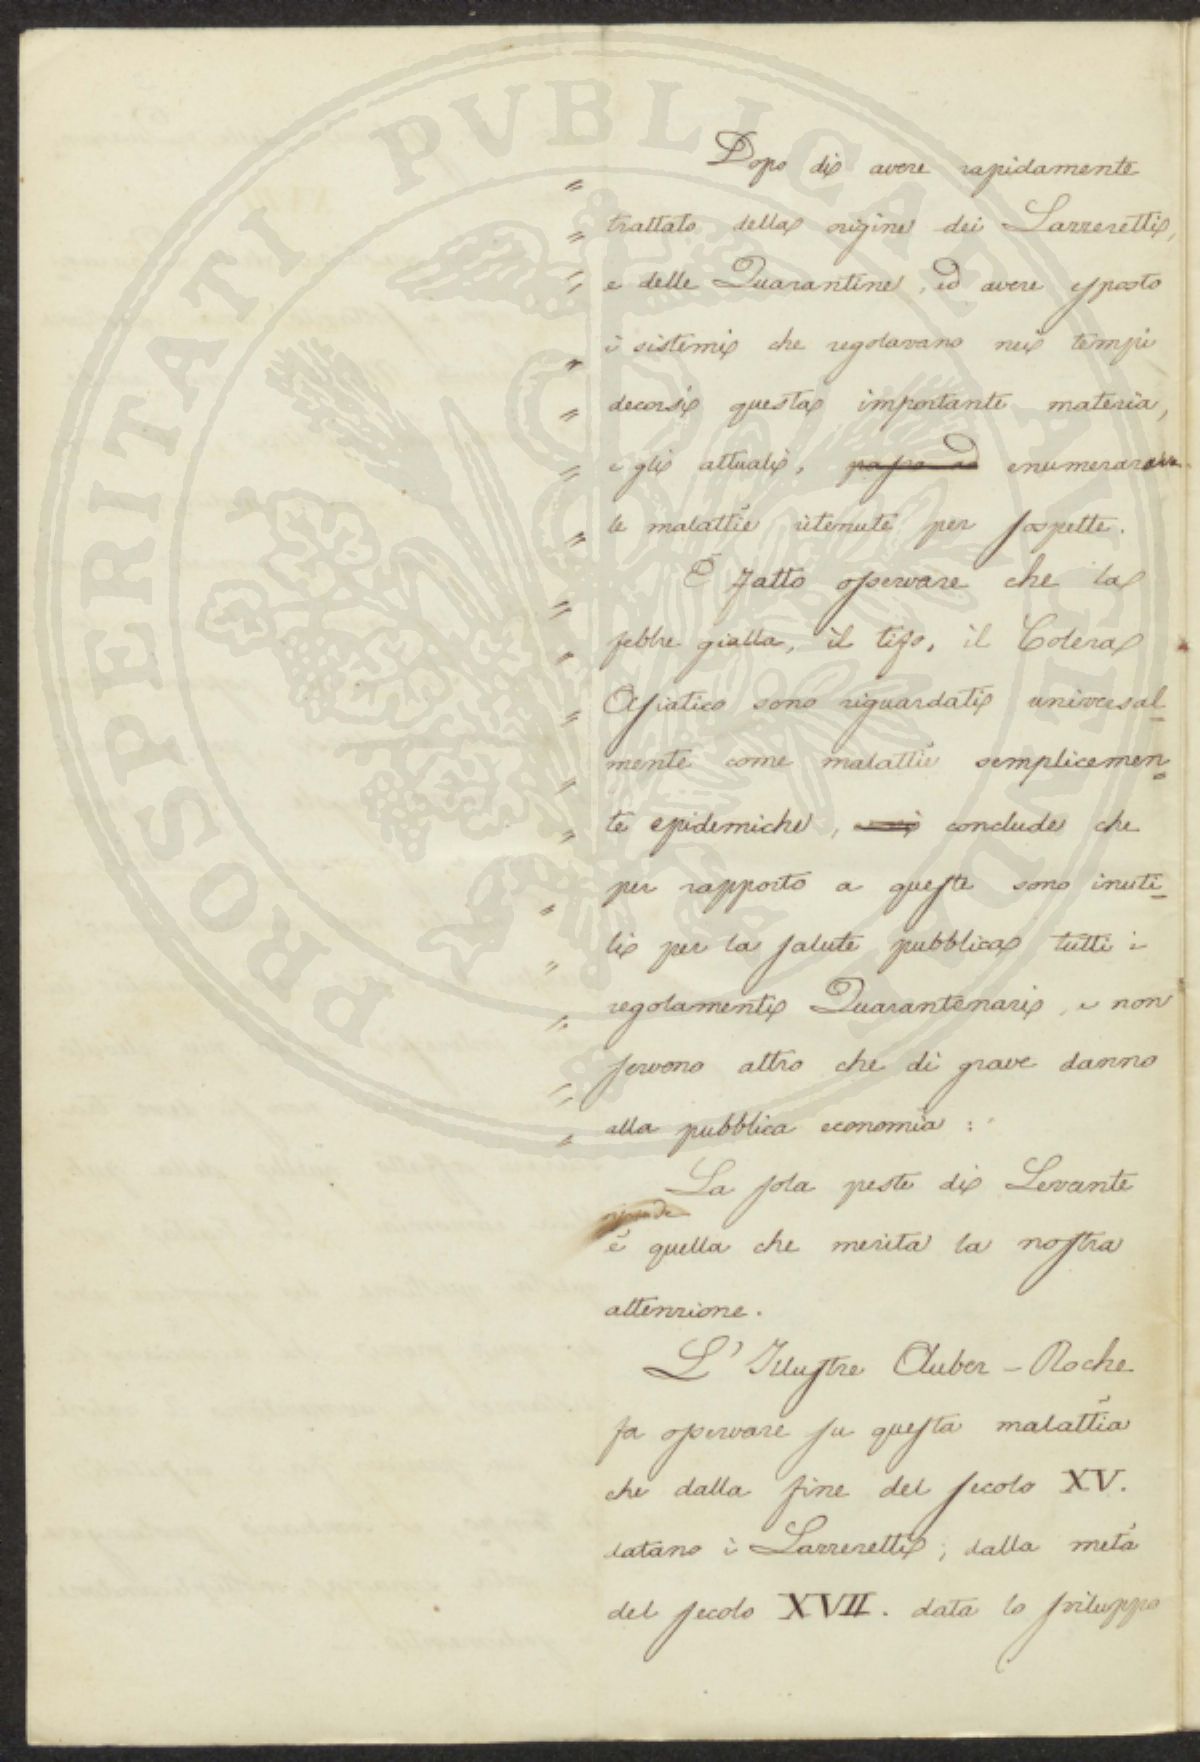 PROSPERITATI PVBLICAE AVGENDAE
Dopo di avere rapidamente
" trattato della origine dei Lazzeretti,
" e delle Quarantine, ed avere esposto
" i sistemi che regolavano nei tempi
" decorsi questa importante materia,
" e gli attuali, passo ad enumerare
" le malattie ritenute per sospette.
" È fatto osservare che la
" febbre gialla, il tifo, il Colera
" Asiatico sono riguardati universal-
" mente come malattie semplicemen-
" te epidemiche, conclude che
" per rapporto a queste sono inuti-
" li per la salute pubblica tutti i
" regolamenti Quarantenari, e non
" servono altro che di grave danno
" alla pubblica economia:
La sola peste di Levante
è quella che merita la nostra
attenzione.
L'Illustre Auber-Roche
fa osservare su questa malattia
che dalla fine del secolo XV.
datano i Lazzeretti, dalla metà
del secolo XVII. data lo sviluppo